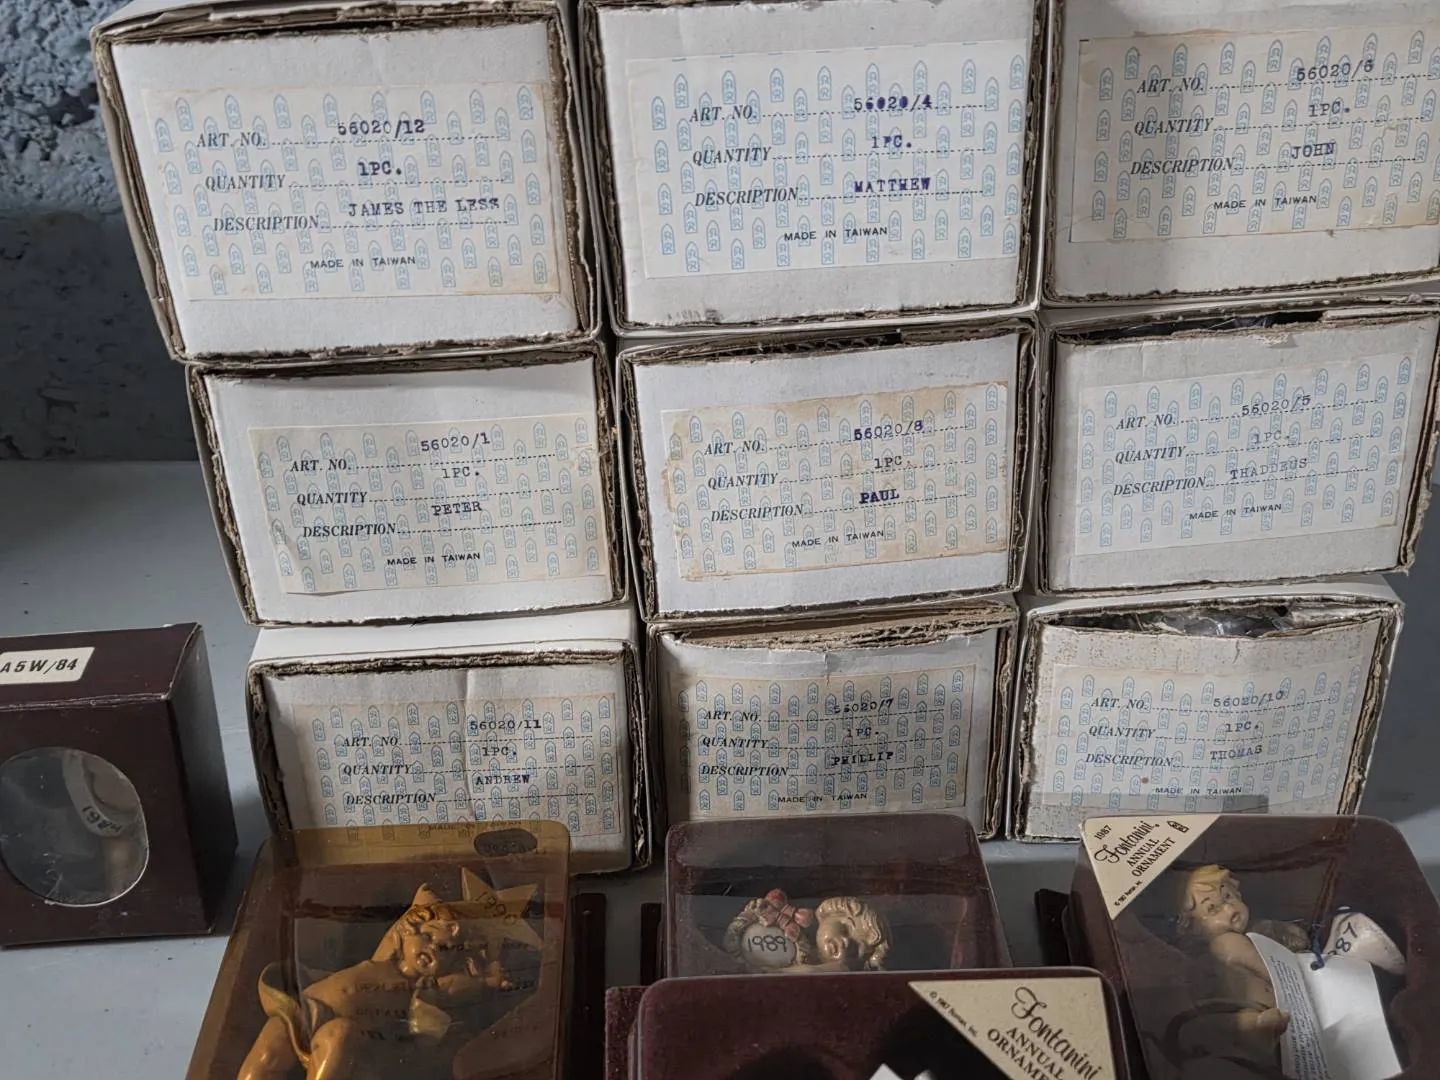 56020/12
ART. NO.
1PC.
QUANTITY
JAMES THE LESS
DESCRIPTION
MADE IN TAIWAN
56020/4
ART. NO.
1PC.
QUANTITY
MATTHEW
DESCRIPTION
MADE IN TAIWAN
56020/6
ART. NO.
1PC.
QUANTITY
JOHN
DESCRIPTION
MADE IN TAIWAN
56020/1
ART. NO.
1PC.
QUANTITY
PETER
DESCRIPTION
MADE IN TAIWAN
56020/8
ART. NO.
1PC.
QUANTITY
PAUL
DESCRIPTION
MADE IN TAIWAN
56020/5
ART. NO.
1PC.
QUANTITY
THADDEUS
DESCRIPTION
MADE IN TAIWAN
A5W/84
56020/11
ART. NO.
1PC.
QUANTITY
ANDREW
DESCRIPTION
MADE IN TAIWAN
56020/7
ART. NO.
1PC.
QUANTITY
PHILLIP
DESCRIPTION
MADE IN TAIWAN
56020/10
ART. NO.
1PC.
QUANTITY
THOMAS
DESCRIPTION
MADE IN TAIWAN
1990
1989
1987
Fontanini
ANNUAL
ORNAMENT
87
© 1987 Roman, Inc.
Fontanini
ANNUAL